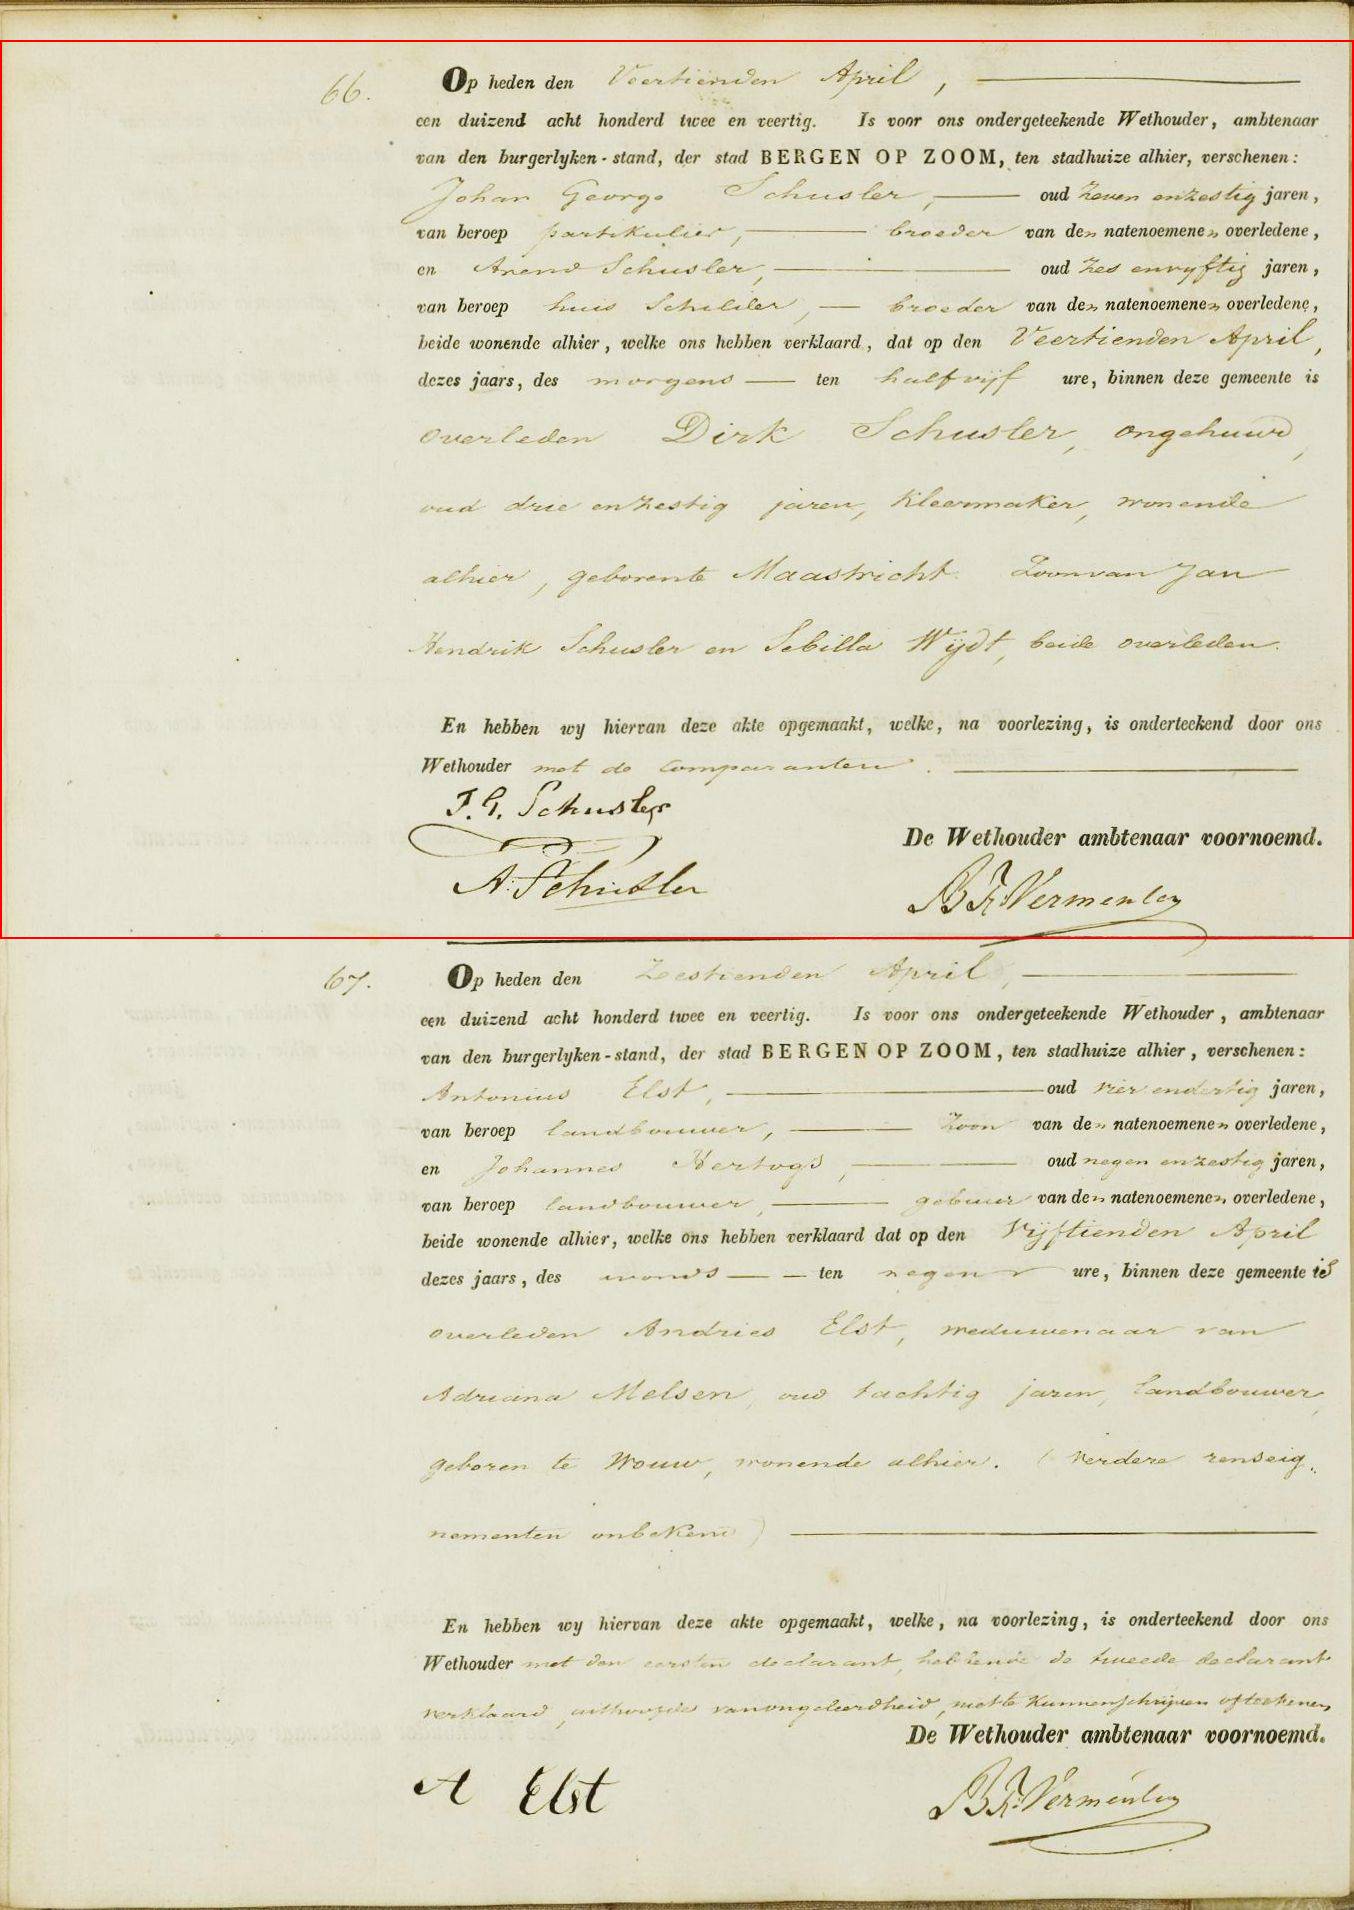 66. Op heden den Veertienden April,
een duizend acht honderd twee en veertig. Is voor ons ondergeteekende Wethouder, ambtenaar
van den burgerlyken-stand, der stad BERGEN OP ZOOM, ten stadhuize alhier, verschenen:
Johan George Schusler, oud zeven en zestig jaren,
van beroep partikulier, broeder van den natenoemenen overledene,
en Arend Schusler, oud zes en vyftig jaren,
van beroep huis Schilder, broeder van den natenoemenen overledene,
beide wonende alhier, welke ons hebben verklaard, dat op den Veertienden April,
dezes jaars, des morgens ten half vyf ure, binnen deze gemeente is
overleden Dirk Schusler, ongehuwd,
oud drie en zestig jaren, kleermaker, wonende
alhier, geboren te Maastricht. Zoon van Jan
Hendrik Schusler en Sebilla Wijdt, beide overleden.
En hebben wy hiervan deze akte opgemaakt, welke, na voorlezing, is onderteekend door ons
Wethouder met de comparanten.
J. G. Schusler
De Wethouder ambtenaar voornoemd.
A. Schusler
Vermeulen
67. Op heden den Zestienden April,
een duizend acht honderd twee en veertig. Is voor ons ondergeteekende Wethouder, ambtenaar
van den burgerlyken-stand, der stad BERGEN OP ZOOM, ten stadhuize alhier, verschenen:
Antonius Elst, oud vier en dertig jaren,
van beroep landbouwer, Zoon van den natenoemenen overledene,
en Johannes Hertogs, oud negen en zestig jaren,
van beroep landbouwer, gebuur van den natenoemenen overledene,
beide wonende alhier, welke ons hebben verklaard dat op den Vijftienden April
dezes jaars, des avonds ten negen ure, binnen deze gemeente is
overleden Andries Elst, weduwenaar van
Adriana Melsen, oud tachtig jaren, landbouwer,
geboren te Wouw, wonende alhier. (verdere renseig-
nementen onbekend)
En hebben wy hiervan deze akte opgemaakt, welke, na voorlezing, is onderteekend door ons
Wethouder met den eersten declarant, hebbende de tweede declarant
verklaard, uithoofde van ongeleerdheid, niet te kunnen schrijven of teekenen,
De Wethouder ambtenaar voornoemd.
A Elst
Vermeulen